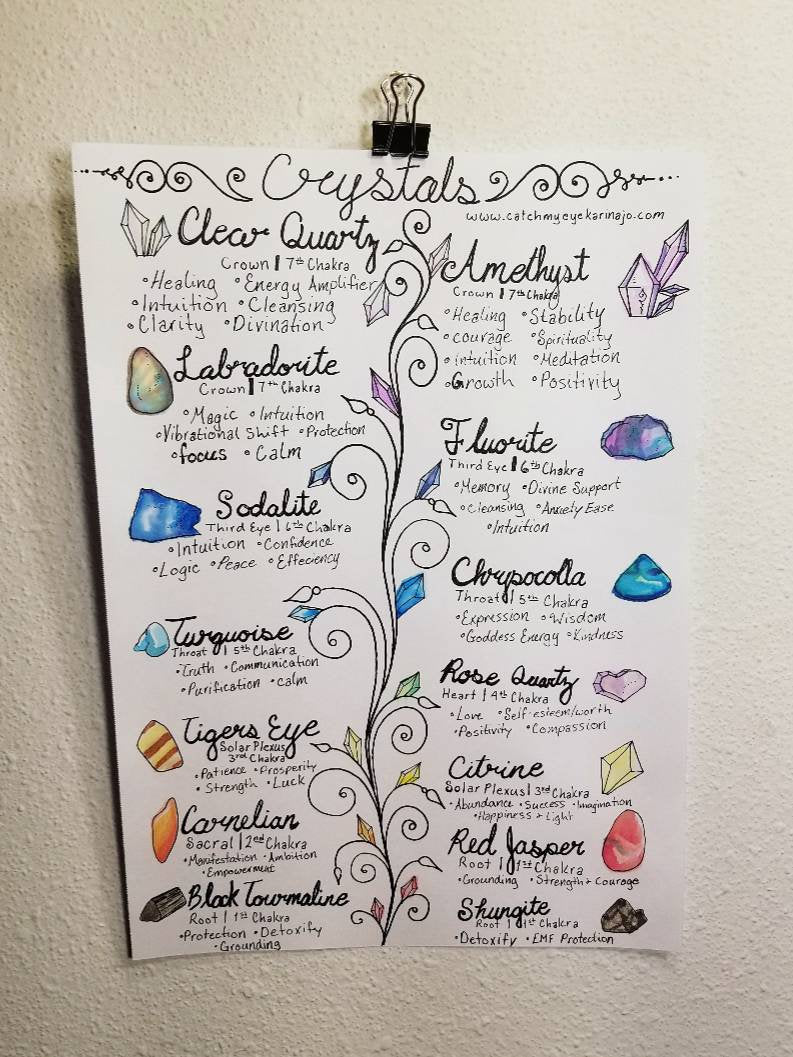 Crystals
www.catchmyeyekarinajo.com
Clear Quartz
Crown | 7th Chakra
•Healing •Energy Amplifier
•Intuition •Cleansing
•Clarity •Divination
Labradorite
Crown | 7th Chakra
•Magic •Intuition
•Vibrational Shift •Protection
•focus •Calm
Sodalite
Third Eye | 6th Chakra
•Intuition •Confidence
•Logic •Peace •Effeciency
Turquoise
Throat | 5th Chakra
•Truth •Communication
•Purification •calm
Tigers Eye
Solar Plexus
3rd Chakra
•Patience •Prosperity
•Strength •Luck
Carnelian
Sacral | 2nd Chakra
•Manifestation •Ambition
•Empowerment
Black Tourmaline
Root | 1st Chakra
•Protection •Detoxify
•Grounding
Amethyst
Crown | 7th Chakra
•Healing •Stability
•courage •Spirituality
•intuition •Meditation
•Growth •Positivity
Fluorite
Third Eye | 6th Chakra
•Memory •Divine Support
•Cleansing •Anxiety Ease
•Intuition
Chrysocolla
Throat | 5th Chakra
•Expression •Wisdom
•Goddess Energy •Kindness
Rose Quartz
Heart | 4th Chakra
•Love •Self-esteem/worth
•Positivity •Compassion
Citrine
Solar Plexus | 3rd Chakra
•Abundance •Success •Imagination
•Happiness + Light
Red Jasper
Root | 1st Chakra
•Grounding •Strength + Courage
Shungite
Root | 1st Chakra
•Detoxify •EMF Protection